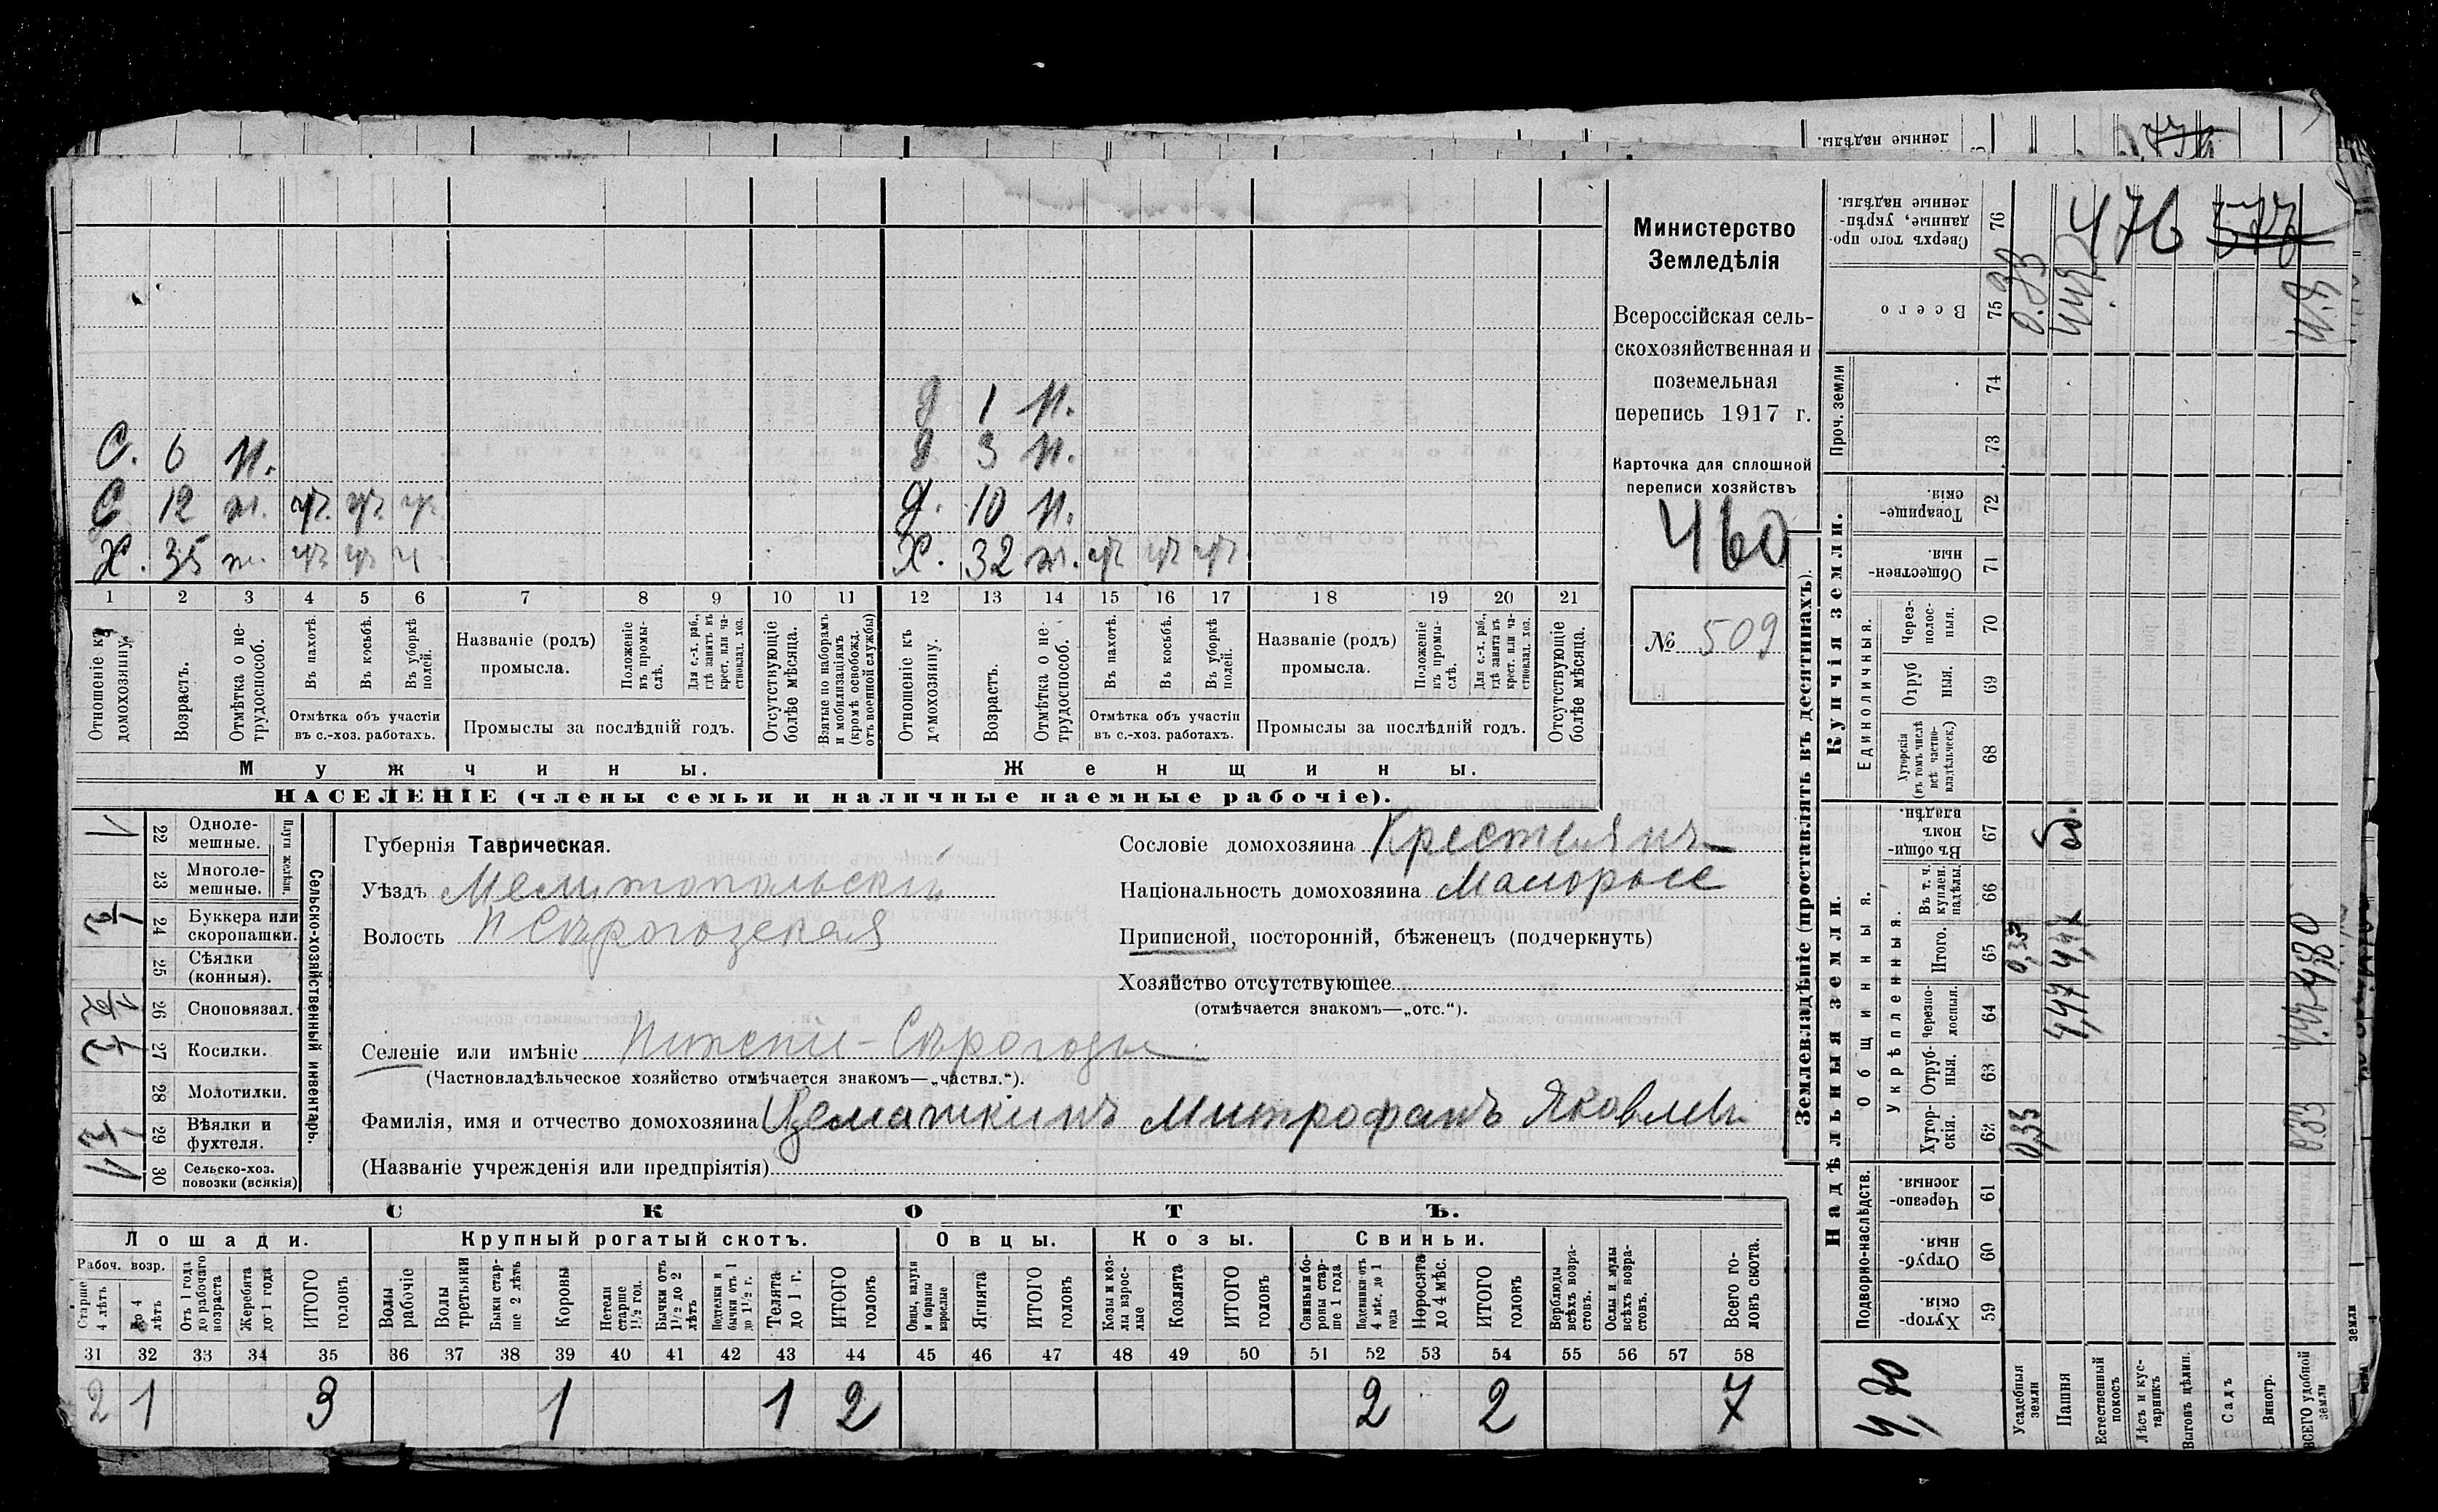 ленные надѣлы.
С. 6 п.
С 12
Х. 35
д 1 п.
д 3 п.
д. 10 п.
Х. 32
1 2 3 4 5 6 7 8 9 10 11 12 13 14 15 16 17 18 19 20 21
Отношеніе къ домохозяину.
Возрастъ.
Отмѣтка о не-
трудоспособ.
Въ пахотѣ.
Въ косьбѣ.
Въ уборкѣ
полей.
Отмѣтка объ участіи
въ с.-хоз. работахъ.
Названіе (родъ)
промысла.
Положеніе
въ промы-
слѣ.
Для с.-х. раб.,
гдѣ занятъ въ
крест. или ча-
стновлад. хоз.
Промыслы за послѣдній годъ.
Отсутствующіе
болѣе мѣсяца.
Взятые по наборамъ
и мобилизаціямъ
(кромѣ освобожд.
отъ военной службы)
Отношеніе къ
домохозяину.
Возрастъ.
Отмѣтка о не-
трудоспособ.
Въ пахотѣ.
Въ косьбѣ.
Въ уборкѣ
полей.
Отмѣтка объ участіи
въ с.-хоз. работахъ.
Названіе (родъ)
промысла.
Положеніе
въ промы-
слѣ.
Для с.-х. раб.,
гдѣ занята въ
крест. или ча-
стновлад. хоз.
Промыслы за послѣдній годъ.
Отсутствующіе
болѣе мѣсяца.
Мужчины.
Женщины.
НАСЕЛЕНІЕ (члены семьи и наличные наемные рабочіе).
Министерство
Земледѣлія
Всероссійская сель-
скохозяйственная и
поземельная
перепись 1917 г.
Карточка для сплошной
переписи хозяйствъ
460
№ 509
Сельско-хозяйственный инвентарь.
Плуги желѣзн.
22 Одноле-
мешные. 1
23 Многоле-
мешные.
24 Буккера или
скоропашки.
25 Сѣялки
(конныя).
26 Сноповязал.
27 Косилки.
28 Молотилки.
29 Вѣялки и
фухтеля.
30 Сельско-хоз.
повозки (всякія)
Губернія Таврическая.
Уѣздъ Мелитопольскій
Волость Н Сѣрогозская
Селеніе или имѣніе Нижніе-Сѣрогозы
(Частновладѣльческое хозяйство отмѣчается знакомъ—„частвл.“).
Фамилія, имя и отчество домохозяина Митрофанъ Яковлев
(Названіе учрежденія или предпріятія)
Сословіе домохозяина Крестьянъ
Національность домохозяина Малоросс
Приписной, посторонній, бѣженецъ (подчеркнуть)
Хозяйство отсутствующее
(отмѣчается знакомъ—„отс.“).
СКОТЪ.
Лошади.
Рабоч. возр.
Старше
4 лѣтъ
До 4
лѣтъ
Отъ 1 года
до рабочаго
возраста
Жеребята
до 1 года
ИТОГО
головъ
Крупный рогатый скотъ.
Волы
рабочіе
Волы
третьяки
Быки стар-
ше 2 лѣтъ
Коровы
Нетели
старше
1½ год.
Бычки отъ
1½ до 2
лѣтъ
Подтелки и
бычки отъ 1
до 1½ г.
Телята
до 1 г.
ИТОГО
головъ
Овцы.
Овцы, валухи
и бараны
взрослые
Ягнята
ИТОГО
головъ
Козы.
Козы и коз-
лы взрос-
лые
Козлята
ИТОГО
головъ
Свиньи.
Свиньи и бо-
ровы стар-
ше 1 года
Подсвинки отъ
4 мѣс. до 1
года
Поросята
до 4 мѣс.
ИТОГО
головъ
Верблюды
всѣхъ возра-
стовъ.
Ослы и мулы
всѣхъ возра-
стовъ.
Всего го-
ловъ скота.
31 32 33 34 35 36 37 38 39 40 41 42 43 44 45 46 47 48 49 50 51 52 53 54 55 56 57 58
2 1 3 1 1 2 2 2 7
Землевладѣніе (проставлять въ десятинахъ).
Сверхъ того про-
данные, укрѣп-
ленные надѣлы. 76
476
Всего 75
Купчія земли.
Проч. земли
74
73
Товарище-
скія. 72
Обществен-
ныя. 71
Единоличныя.
Через-
полос-
ныя. 70
Отруб
ныя. 69
Хуторскія
(въ томъ числѣ
всѣ частно-
владѣльческ.) 68
Надѣльныя земли.
Общинныя.
Въ общин-
номъ
владѣн. 67
Укрѣпленныя.
Въ т. ч.
куплен.
надѣлы. 66
Итого. 65
Черезпо-
лосныя. 64 4,47
Отруб-
ныя. 63
Хутор-
скія. 62 0,33
Подворно-наслѣдств.
Черезпо-
лосныя. 61
Отруб-
ныя. 60
Хутор-
скія. 59
Усадебныя
земли
Пашня
Естественный
покосъ
Лѣсъ и кус-
тарникъ
Выгонъ цѣлин.
Садъ
Виногр.
ВСЕГО удобной
земли
4,80
0.33
4,70